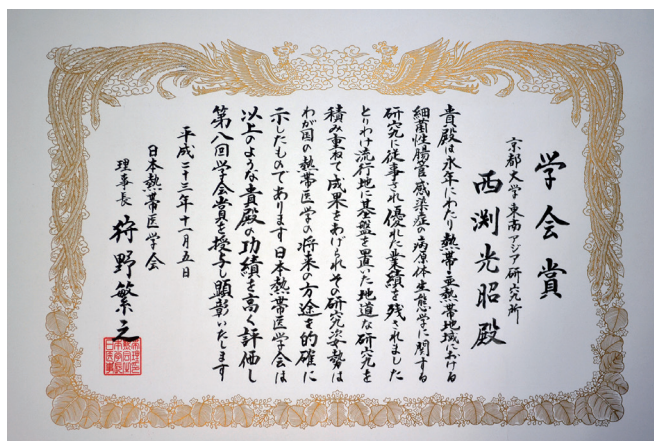 学会賞
京都大学東南アジア研究所
西渕光昭殿
貴殿は永年にわたり熱帯・亜熱帯地域における
細菌性腸管感染症の病原体生態学に関する
研究に従事され優れた業績を残されました
とりわけ流行地に基盤を置いた地道な研究を
積み重ねて成果をあげられその研究姿勢は
わが国の熱帯医学の将来の方途を的確に
示したものであります日本熱帯医学会は
以上のような貴殿の功績を高く評価し
第八回学会賞を授与し顕彰いたします
平成二十三年十一月五日
日本熱帯医学会
理事長 狩野繁之